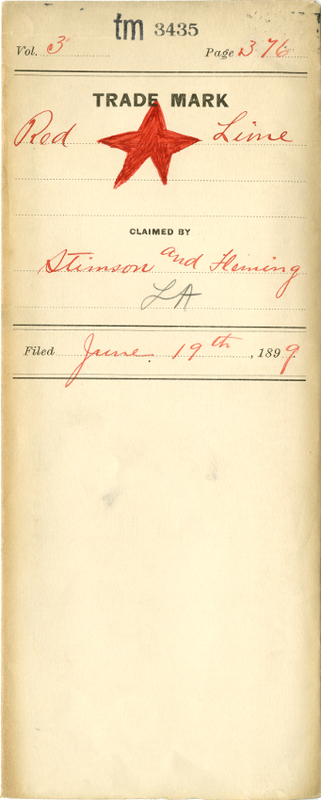 tm 3435
Vol. 3 Page 376
TRADE MARK
Red Lime
CLAIMED BY
Stimson and Fleming
LA
Filed June 19th, 1899.